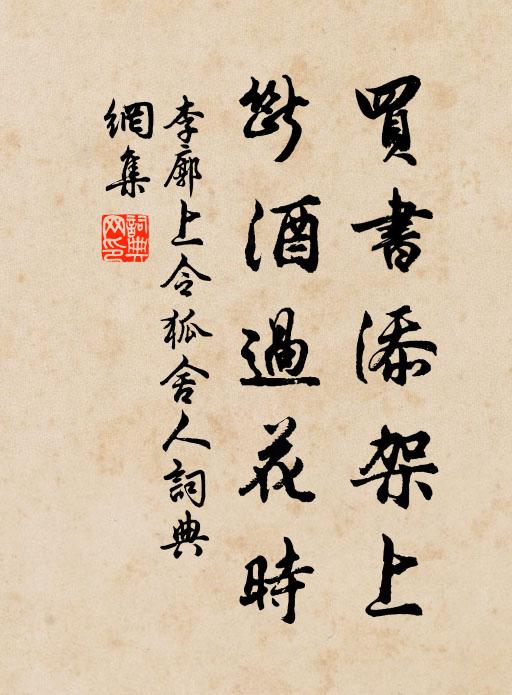 買書添架上
斷酒過花時
李廓上令狐舍人詞典
網集
詞典
网印